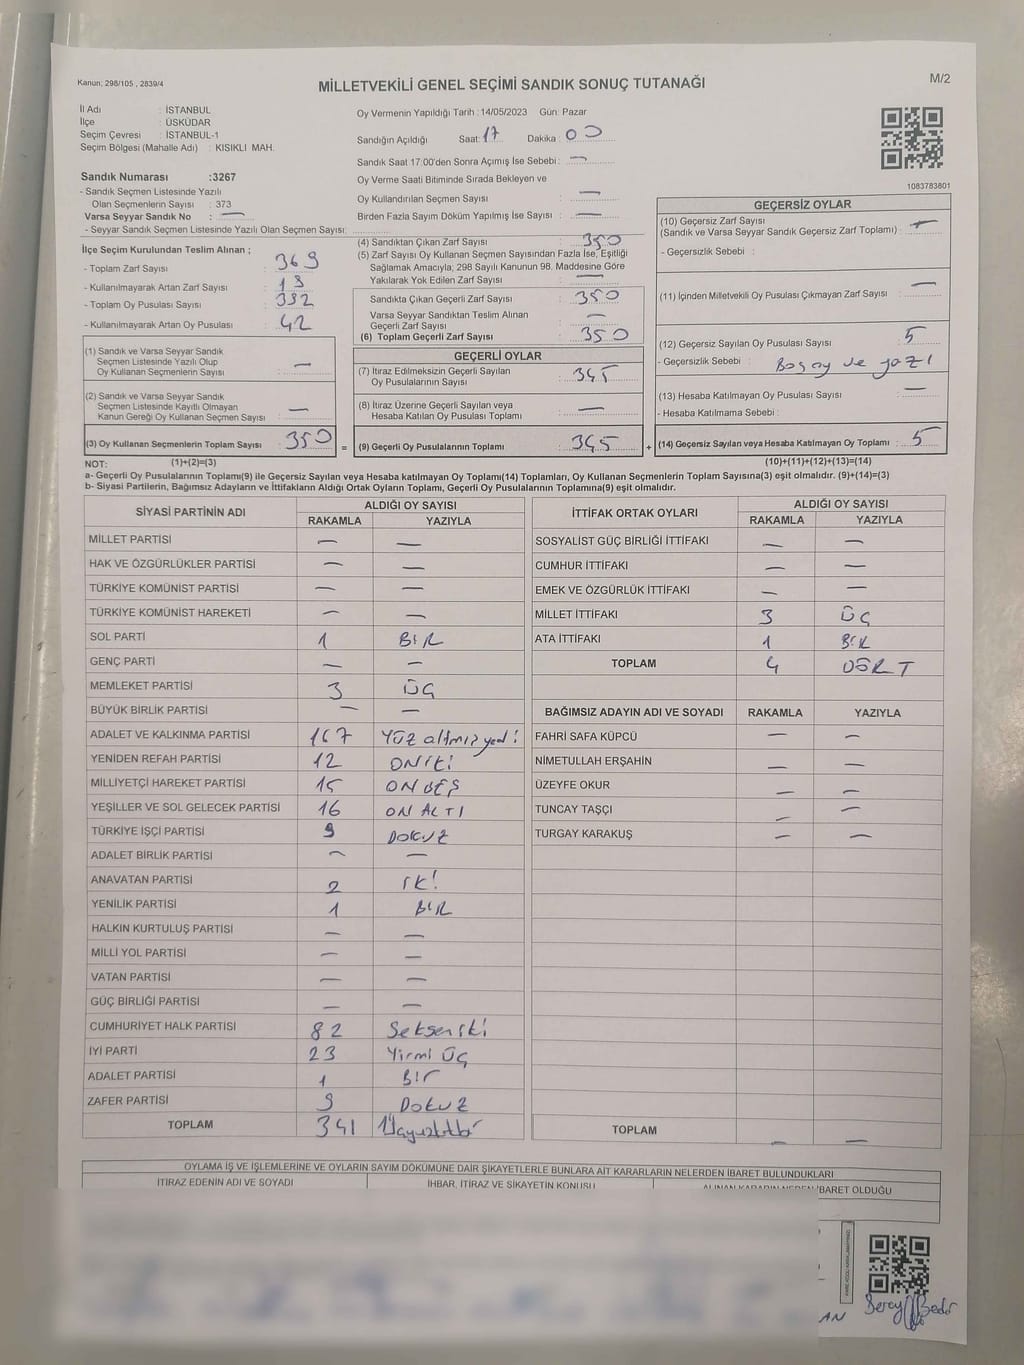 Kanun: 298/105 , 2839/4
MİLLETVEKİLİ GENEL SEÇİMİ SANDIK SONUÇ TUTANAĞI
M/2
İl Adı : İSTANBUL
İlçe : ÜSKÜDAR
Seçim Çevresi : İSTANBUL-1
Seçim Bölgesi (Mahalle Adı) : KISIKLI MAH.
Sandık Numarası :3267
- Sandık Seçmen Listesinde Yazılı
Olan Seçmenlerin Sayısı : 373
Varsa Seyyar Sandık No : —
- Seyyar Sandık Seçmen Listesinde Yazılı Olan Seçmen Sayısı:
Oy Vermenin Yapıldığı Tarih : 14/05/2023 Gün: Pazar
Sandığın Açıldığı Saat: 17 Dakika : 00
Sandık Saat 17:00'den Sonra Açımış İse Sebebi : —
Oy Verme Saati Bitiminde Sırada Bekleyen ve
Oy Kullandırılan Seçmen Sayısı : —
Birden Fazla Sayım Döküm Yapılmış İse Sayısı : —
1083783801
İlçe Seçim Kurulundan Teslim Alınan ;
- Toplam Zarf Sayısı : 369
- Kullanılmayarak Artan Zarf Sayısı : 19
- Toplam Oy Pusulası Sayısı : 392
- Kullanılmayarak Artan Oy Pusulası : 42
(1) Sandık ve Varsa Seyyar Sandık
Seçmen Listesinde Yazılı Olup
Oy Kullanan Seçmenlerin Sayısı : —
(2) Sandık ve Varsa Seyyar Sandık
Seçmen Listesinde Kayıtlı Olmayan
Kanun Gereği Oy Kullanan Seçmen Sayısı : —
(3) Oy Kullanan Seçmenlerin Toplam Sayısı : 350 =
(4) Sandıktan Çıkan Zarf Sayısı : 350
(5) Zarf Sayısı Oy Kullanan Seçmen Sayısından Fazla İse, Eşitliği
Sağlamak Amacıyla; 298 Sayılı Kanunun 98. Maddesine Göre
Yakılarak Yok Edilen Zarf Sayısı : —
Sandıkta Çıkan Geçerli Zarf Sayısı : 350
Varsa Seyyar Sandıktan Teslim Alınan
Geçerli Zarf Sayısı : —
(6) Toplam Geçerli Zarf Sayısı : 350
GEÇERLİ OYLAR
(7) İtiraz Edilmeksizin Geçerli Sayılan
Oy Pusulalarının Sayısı : 345
(8) İtiraz Üzerine Geçerli Sayılan veya
Hesaba Katılan Oy Pusulası Toplamı : —
(9) Geçerli Oy Pusulalarının Toplamı : 345 +
GEÇERSİZ OYLAR
(10) Geçersiz Zarf Sayısı
(Sandık ve Varsa Seyyar Sandık Geçersiz Zarf Toplamı) : —
- Geçersizlik Sebebi :
(11) İçinden Milletvekili Oy Pusulası Çıkmayan Zarf Sayısı : —
(12) Geçersiz Sayılan Oy Pusulası Sayısı : 5
- Geçersizlik Sebebi : Boş oy ve yazı
(13) Hesaba Katılmayan Oy Pusulası Sayısı : —
- Hesaba Katılmama Sebebi :
(14) Geçersiz Sayılan veya Hesaba Katılmayan Oy Toplamı : 5
NOT: (1)+(2)=(3)
(10)+(11)+(12)+(13)=(14)
a- Geçerli Oy Pusulalarının Toplamı(9) ile Geçersiz Sayılan veya Hesaba katılmayan Oy Toplamı(14) Toplamları, Oy Kullanan Seçmenlerin Toplam Sayısına(3) eşit olmalıdır. (9)+(14)=(3)
b- Siyasi Partilerin, Bağımsız Adayların ve İttifakların Aldığı Ortak Oyların Toplamı, Geçerli Oy Pusulalarının Toplamına(9) eşit olmalıdır.
SİYASİ PARTİNİN ADI
ALDIĞI OY SAYISI
RAKAMLA YAZIYLA
MİLLET PARTİSİ — —
HAK VE ÖZGÜRLÜKLER PARTİSİ — —
TÜRKİYE KOMÜNİST PARTİSİ — —
TÜRKİYE KOMÜNİST HAREKETİ — —
SOL PARTİ 1 BİR
GENÇ PARTİ — —
MEMLEKET PARTİSİ 3 ÜÇ
BÜYÜK BİRLİK PARTİSİ — —
ADALET VE KALKINMA PARTİSİ 167 Yüz altmış yedi
YENİDEN REFAH PARTİSİ 12 ONİKİ
MİLLİYETÇİ HAREKET PARTİSİ 15 ON BEŞ
YEŞİLLER VE SOL GELECEK PARTİSİ 16 ON ALTI
TÜRKİYE İŞÇİ PARTİSİ 9 DOKUZ
ADALET BİRLİK PARTİSİ — —
ANAVATAN PARTİSİ 2 İKİ
YENİLİK PARTİSİ 1 BİR
HALKIN KURTULUŞ PARTİSİ — —
MİLLİ YOL PARTİSİ — —
VATAN PARTİSİ — —
GÜÇ BİRLİĞİ PARTİSİ — —
CUMHURİYET HALK PARTİSİ 82 Seksen iki
İYİ PARTİ 23 Yirmi Üç
ADALET PARTİSİ 1 BİR
ZAFER PARTİSİ 9 DOKUZ
TOPLAM 341
İTTİFAK ORTAK OYLARI
ALDIĞI OY SAYISI
RAKAMLA YAZIYLA
SOSYALİST GÜÇ BİRLİĞİ İTTİFAKI — —
CUMHUR İTTİFAKI — —
EMEK VE ÖZGÜRLÜK İTTİFAKI — —
MİLLET İTTİFAKI 3 ÜÇ
ATA İTTİFAKI 1 BİR
TOPLAM 4 DÖRT
BAĞIMSIZ ADAYIN ADI VE SOYADI RAKAMLA YAZIYLA
FAHRİ SAFA KÜPCÜ — —
NİMETULLAH ERŞAHİN — —
ÜZEYFE OKUR — —
TUNCAY TAŞÇI — —
TURGAY KARAKUŞ — —
TOPLAM — —
OYLAMA İŞ VE İŞLEMLERİNE VE OYLARIN SAYIM DÖKÜMÜNE DAİR ŞİKAYETLERLE BUNLARA AİT KARARLARIN NELERDEN İBARET BULUNDUKLARI
İTİRAZ EDENİN ADI VE SOYADI
İHBAR, İTİRAZ VE ŞİKAYETİN KONUSU
İBARET OLDUĞU